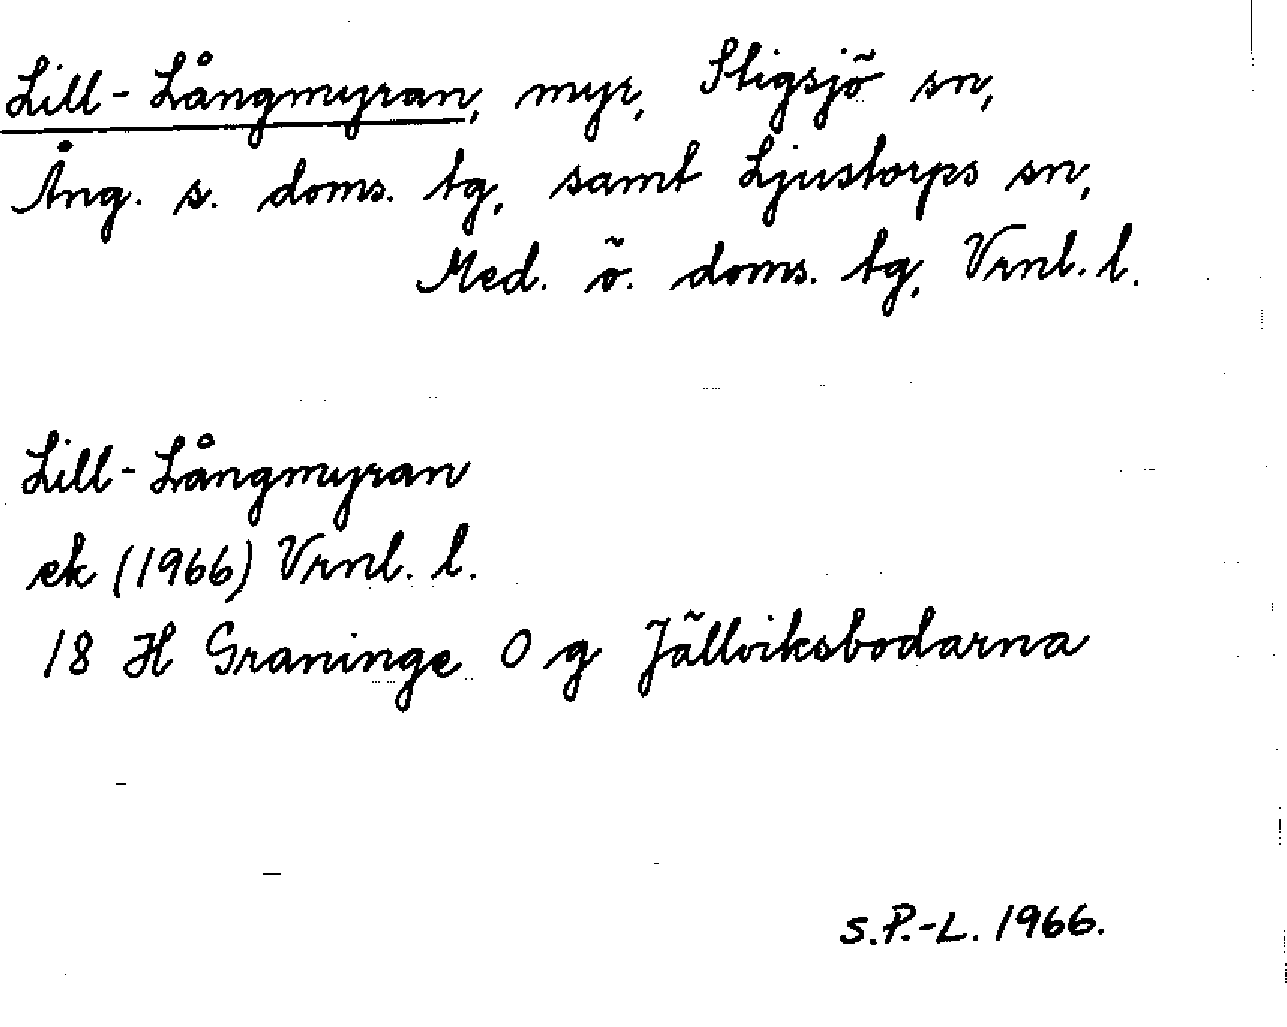 Lill-Långmyran, myr, Stigsjö sn,
Ång. s. doms. tg, samt Ljustorps sn,
Med. ö. doms. tg, Vrnl. l.
Lill-Långmyran
ek (1966) Vrnl. l.
18 H Graninge O g Jällviksbodarna
S.P.-L. 1966.